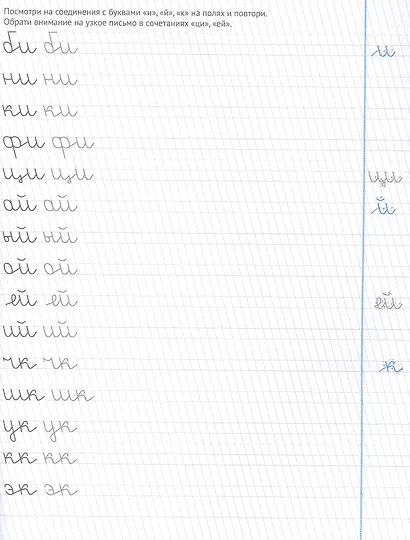 Посмотри на соединения с буквами «и», «й», «к» на полях и повтори.
Обрати внимание на узкое письмо в сочетаниях «ци», «ей».
би би
и
ни ни
ки ки
фи фи
ци ци ци
ай ай й
ый ый
ой ой
ей ей ей
ий ий
чк чк к
шк шк
ук ук
кк кк
эк эк